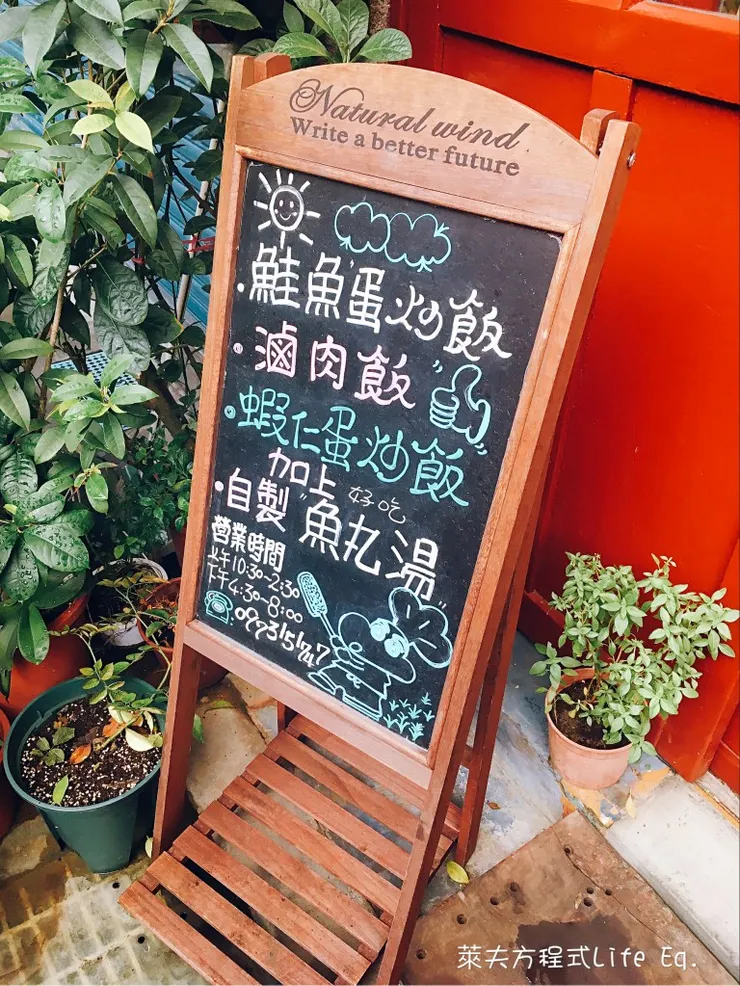 Natural wind
Write a better future
·鮭魚蛋炒飯
·滷肉飯
·蝦仁蛋炒飯
加上 好吃
·自製"魚丸湯"
營業時間
10:30~2:30
下午4:30~8:00
萊夫方程式Life Eq.